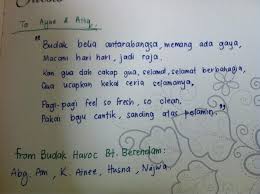 To Ayue & Ahg
"Budak belia antarabangsa, memang ada gaya,
Macam hari hari, jadi raja,
Kan gua dah cakap gua, selamat, selamat berbahagia,
Gua ucapkan kekal ceria selamanya.
Pagi-pagi feel so fresh, so clean,
Pakai baju cantik, sanding atas pelamin."
from Budak Havoc Bt. Berendam:
Abg. Am, K. Ainee, Husna, Najwa